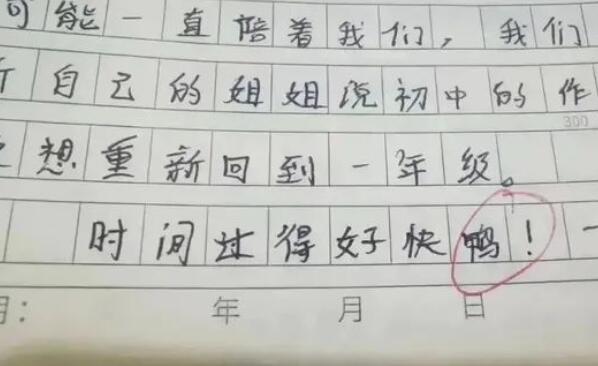 可能一直陪着我们，我们
自己的姐姐说初中的作
300
想重新回到一年级。
时间过得好快鸭！一
期： 年 月 日